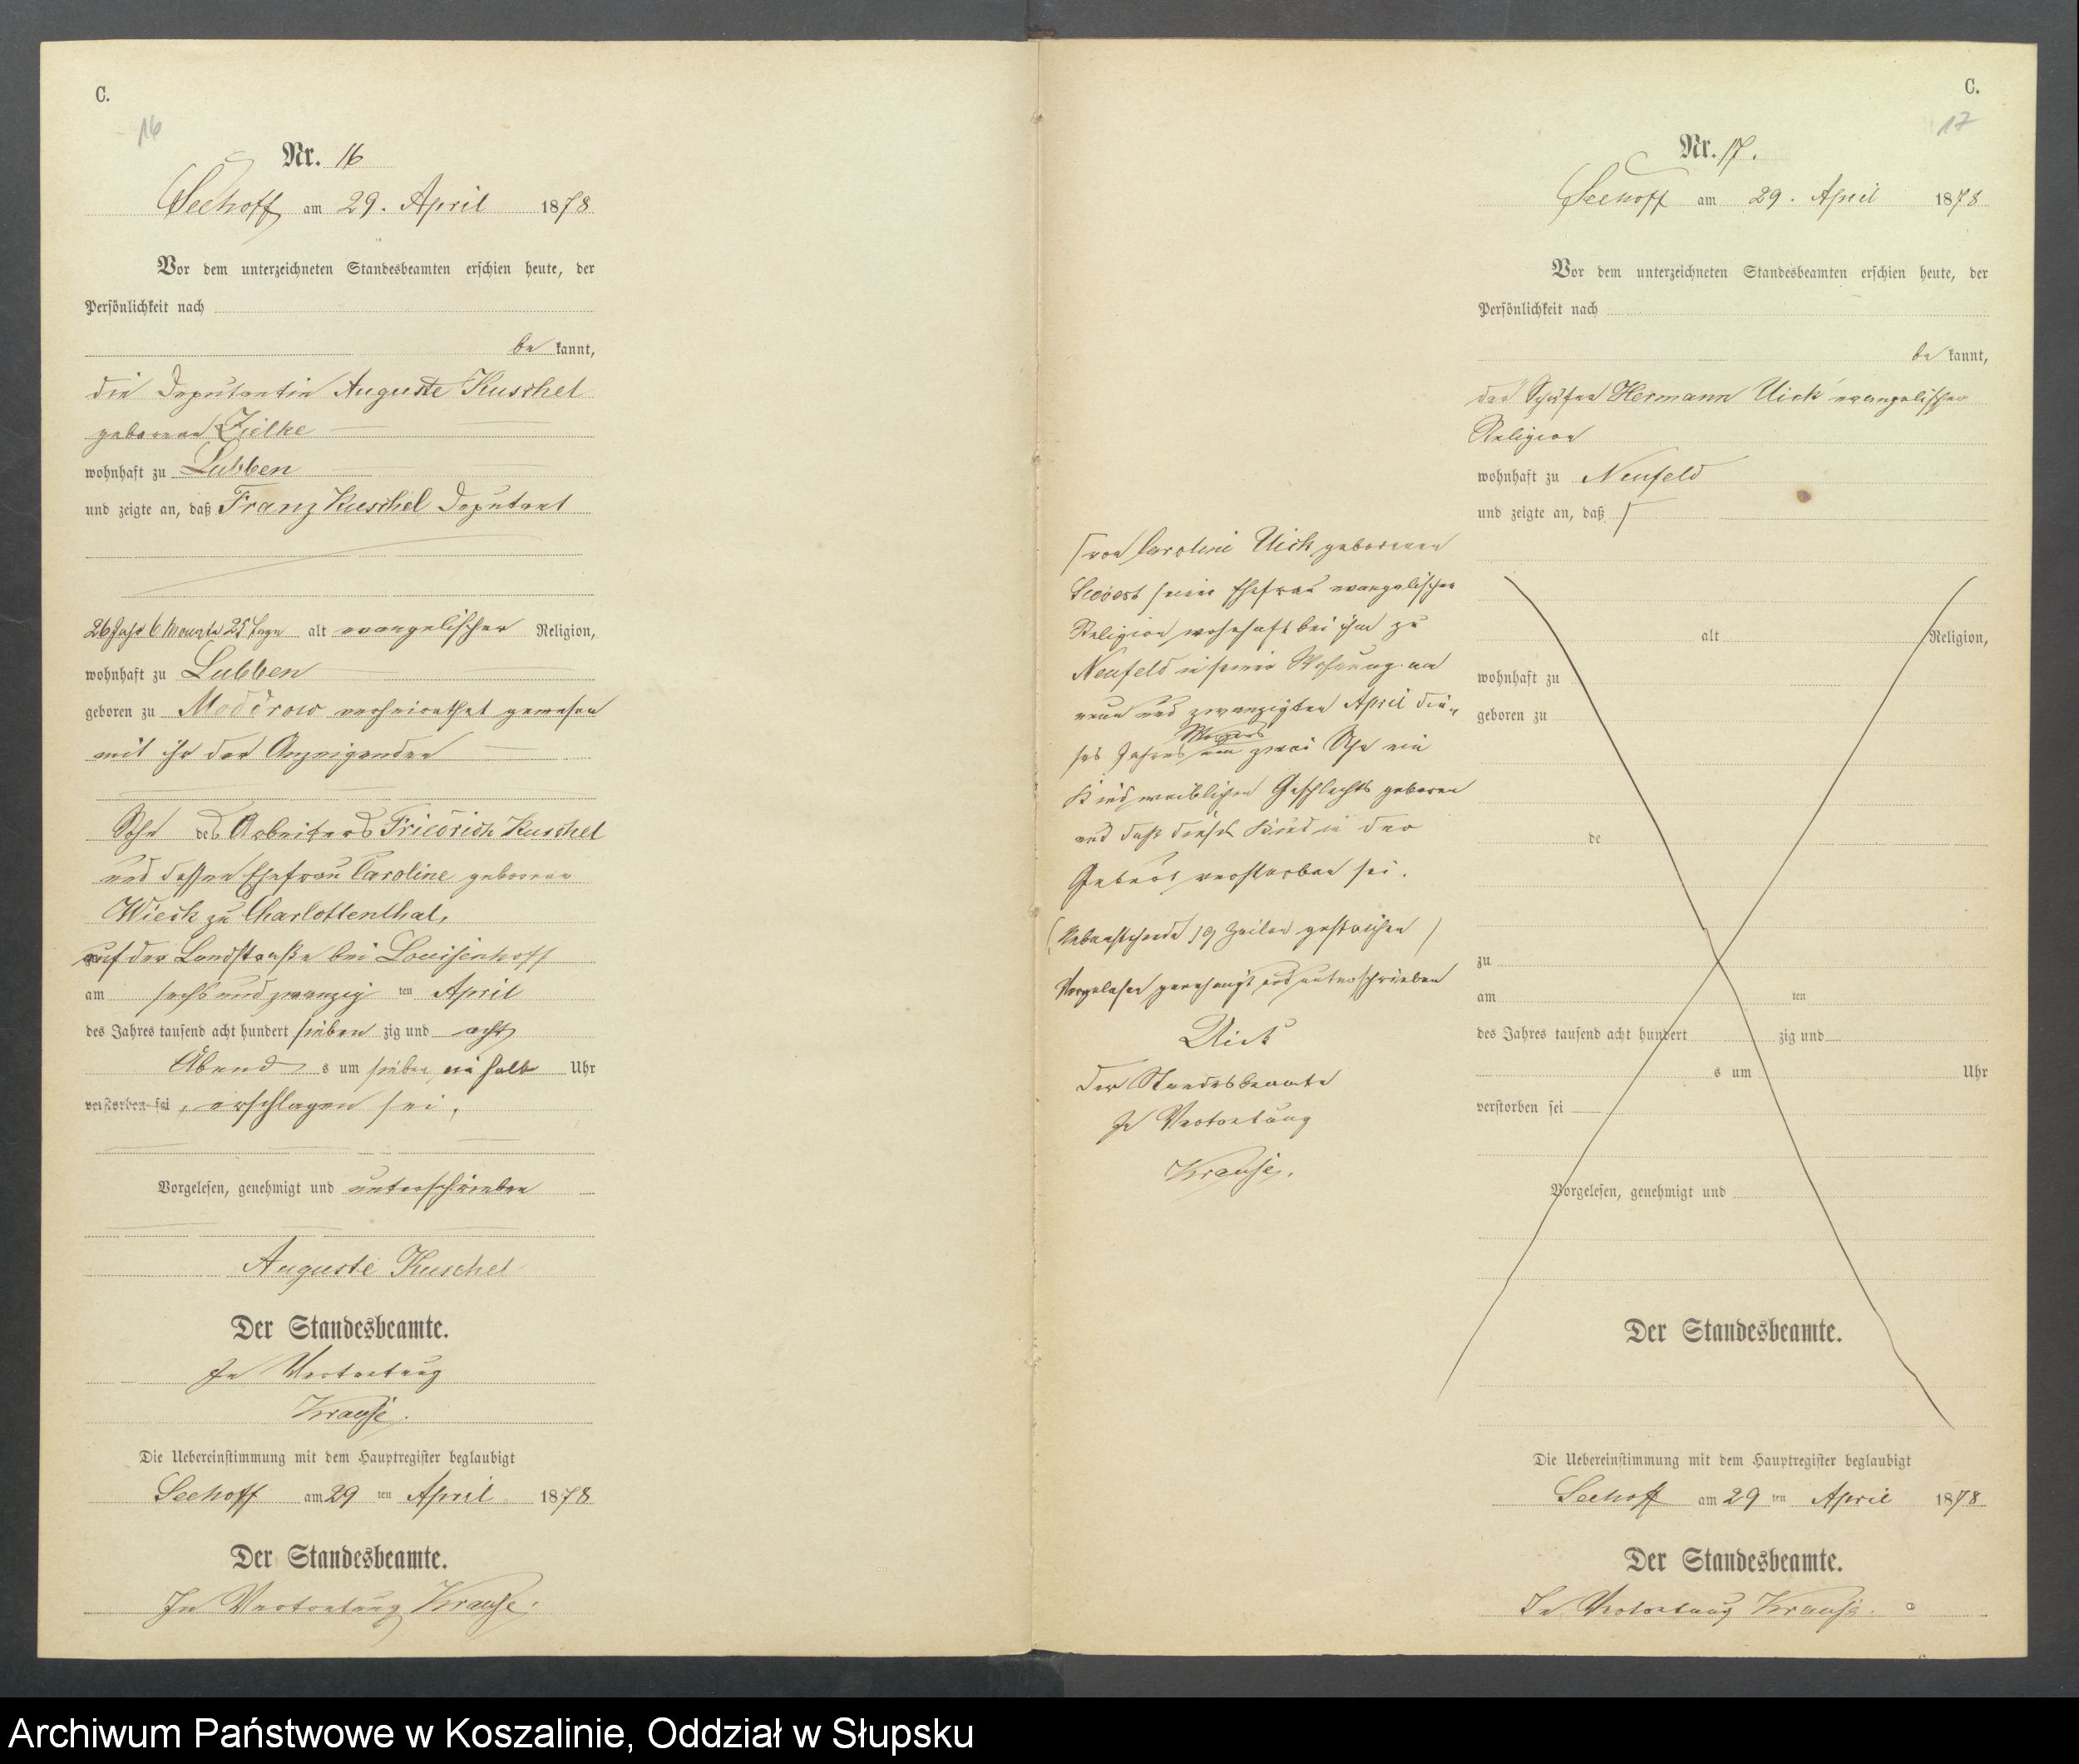 C.
16
Nr. 16
Seehoff am 29. April 1878
Vor dem unterzeichneten Standesbeamten erschien heute, der
Persönlichkeit nach
be kannt,
die Deputantin Auguste Kuschel
geborene Zielke
wohnhaft zu Lubben
und zeigte an, daß Franz Kuschel Deputant
26 Jahr 6 Monate 25 Tage alt evangelischer Religion,
wohnhaft zu Lubben
geboren zu Modderow verheirathet gewesen
mit ihr der Anzeigenden
Sohn des Arbeiters Friedrich Kuschel
und dessen Ehefrau Caroline geborene
Wieck zu Charlottenthal,
auf der Landstraße bei Louisenhoff
am sechs und zwanzig ten April
des Jahres tausend acht hundert sieben zig und acht
Abend s um sieben ein halb Uhr
verstorben sei, erschlagen sei.
Vorgelesen, genehmigt und unterschrieben
Auguste Kuschel
Der Standesbeamte.
In Vertretung
Krause.
Die Uebereinstimmung mit dem Hauptregister beglaubigt
Seehoff am 29 ten April 1878
Der Standesbeamte.
In Vertretung Krause.
C.
17
Nr. 17.
Seehoff am 29. April 1878
Vor dem unterzeichneten Standesbeamten erschien heute, der
Persönlichkeit nach
be kannt,
der Schäfer Hermann Uick evangelischer
Religion
wohnhaft zu Neufeld
und zeigte an, daß ⌈
⌈ von Caroline Uick geborenen
seine Ehefrau evangelischer
Religion wohnhaft bei ihm zu
Neufeld in seiner Wohnung am
neun und zwanzigten April die-
ses Jahres Morgens um zwei Uhr ein
Kind weiblichen Geschlechts geboren
und daß dieses Kind in der
Geburt verstorben sei.
(Nebenstehende 19 Zeilen gestrichen)
Vorgelesen genehmigt und unterschrieben
Uick
Der Standesbeamte
In Vertretung
Krause.
alt Religion,
wohnhaft zu
geboren zu
de
zu
am ten
des Jahres tausend acht hundert zig und
s um Uhr
verstorben sei
Vorgelesen, genehmigt und
Der Standesbeamte.
Die Uebereinstimmung mit dem Hauptregister beglaubigt
Seehoff am 29 ten April 1878
Der Standesbeamte.
In Vertretung Krause.
Archiwum Państwowe w Koszalinie, Oddział w Słupsku